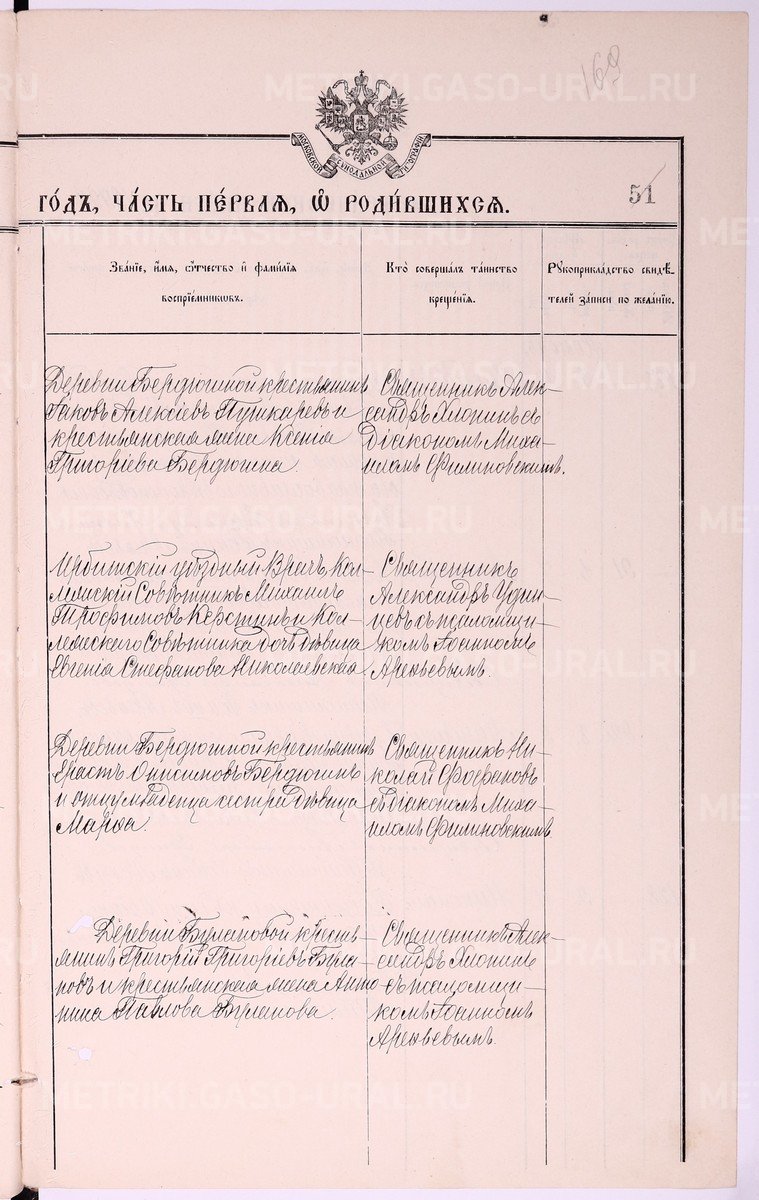 169
МОСКОВСКОЙ СѴНОДАЛЬНОЙ ТИПОГРАФІИ
го́дъ, ча́сть пе́рваѧ, ѡ҆ роди́вшихсѧ.
51
Зва́нїе, и҆́мѧ, ѻ҆́тчество и҆ фами́лїѧ
воспрїе́мникѡвъ.
Кто̀ соверша́лъ та́инство
креще́нїѧ.
Рꙋкоприкла́дство свидѣ́-
телей за́писи по жела́нїю.
Деревни Бердюгиной крестьянинъ
Іаковъ Алексіевъ Пушкаревъ и
крестьянская жена Ксенія
Григоріева Бердюгина.
Священникъ Алек-
сандръ Хлопинъ съ
діакономъ Миха-
иломъ Филиновскимъ.
Ирбитскій уѣздный Врачъ Кол-
лежскій Совѣтникъ Михаилъ
Трофимовъ Керстинъ и Кол-
лежскаго Совѣтника дочь дѣвица
Евгенія Стефанова Николаевская
Священникъ
Александръ Удин-
цевъ съ псаломщи-
комъ Іоанномъ
Арефьевымъ.
Деревни Бердюгиной крестьянинъ
Ерастъ Онисимовъ Бердюгинъ
и отцу младенца сестра дѣвица
Марѳа.
Священникъ Ни-
колай Фофановъ
съ діакономъ Миха-
иломъ Филиновскимъ
Деревни Булановой кресть-
янинъ Григорій Григоріевъ Була-
новъ и крестьянская жена Анто
нина Павлова Буланова.
Священникъ Алек-
сандръ Хлопинъ
съ псаломщи-
комъ Іоанномъ
Арефьевымъ.
METRIKI.GASO-URAL.RU